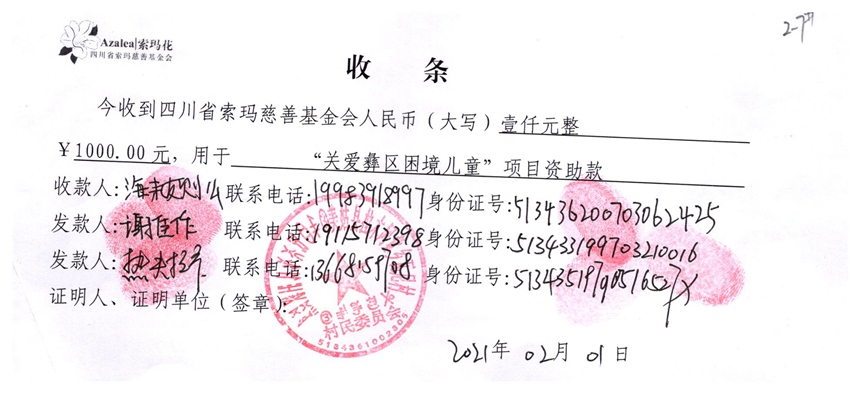 2-7
Azalea|索玛花
四川省索玛慈善基金会
收 条
今收到四川省索玛慈善基金会人民币（大写）壹仟元整
￥1000.00元，用于“关爱彝区困境儿童”项目资助款
收款人:海来 联系电话:19983918997身份证号:513436200703062425
发款人:谢 作 联系电话:19115712398身份证号:513433199703210016
发款人: 联系电话:13668159708身份证号:
证明人、证明单位（签章）:
村民委员会
5134361002305
2021年 02月 01日